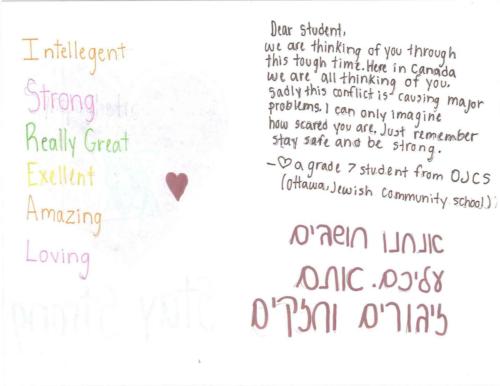 Intellegent
Strong
Really Great
Exellent
Amazing
Loving
Dear Student,
we are thinking of you through
this tough time. Here in Canada
we are all thinking of you.
Sadly this conflict is causing major
problems. I can only imagine
how scared you are. Just remember
stay safe and be strong.
-♡ a grade 7 student from OJCS
(Ottawa Jewish Community School)
אנחנו חושבים
עליכם. אתם
גיבורים וחזקים